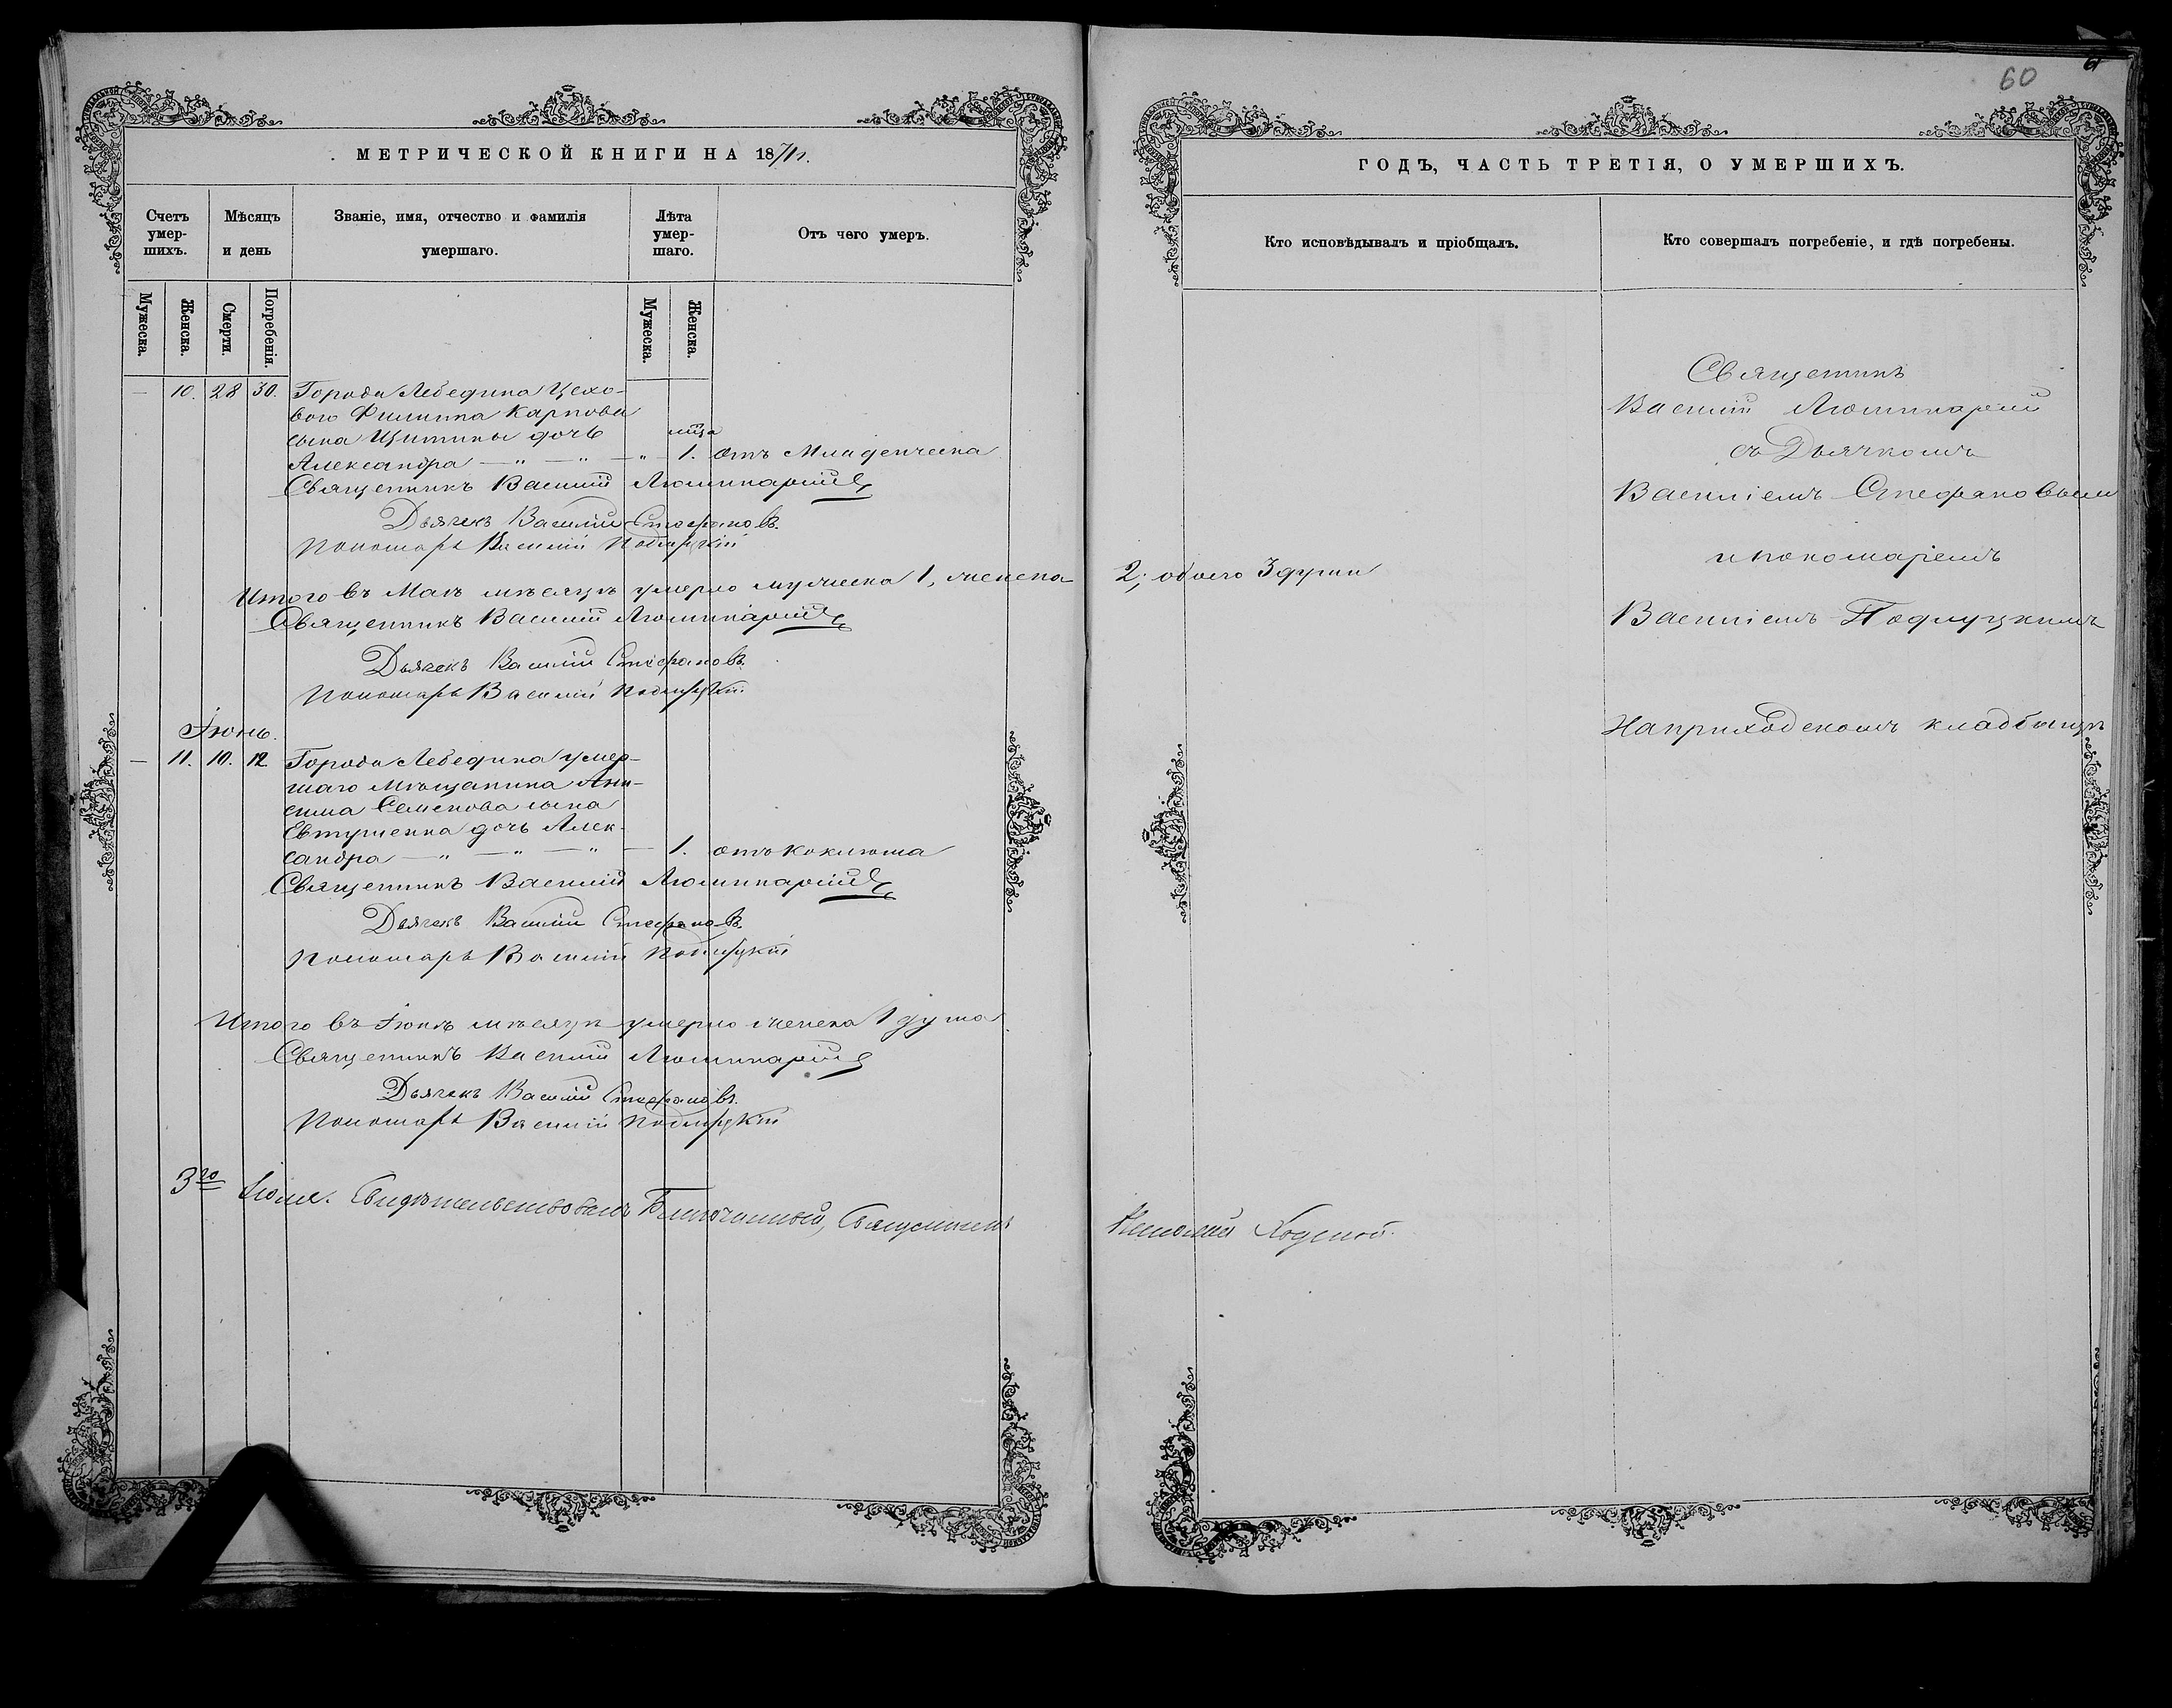 МЕТРИЧЕСКОЙ КНИГИ НА 1871 г.
Счетъ умер-шихъ.
Мѣсяцъ и день
Званіе, имя, отчество и фамилія умершаго.
Лѣта умер-шаго.
Отъ чего умеръ.
Мужеска.
Женска.
Смерти.
Погребенія.
Мужеска.
Женска.
— 10. 28 30. Города Лебедина Цехо-
ваго Филиппа Карпова
сына дочь
Александра — " — " — " 1. отъ Младенческа
Священникъ Василій Люминарскій
Дьячекъ Василій Стефановъ.
Пономарь Василій Подлуцкій
Итого въ Маѣ мѣсяцѣ умерло мужеска 1, женска
Священникъ Василій Люминарскій
Дьячекъ Василій Стефановъ.
Пономарь Василій Подлуцкій
Іюнь.
— 11. 10. 12. Города Лебедина умер-
шаго Мѣщанина Ани-
сима Семенова сына
Евтушенка дочь Алек-
сандра — " — " — " — 1. отъ коклюша
Священникъ Василій Люминарскій
Дьячекъ Василій Стефановъ.
Пономарь Василій Подлуцкій
Итого въ Іюнѣ мѣсяцѣ умерло женска 1 душа
Священникъ Василій Люминарскій
Дьячекъ Василій Стефановъ.
Пономарь Василій Подлуцкій
3го Іюля. Свидѣтельствовалъ Благочинный, Священникъ
60
61
ГОДЪ, ЧАСТЬ ТРЕТІЯ, О УМЕРШИХЪ.
Кто исповѣдывалъ и пріобщалъ.
Кто совершалъ погребеніе, и гдѣ погребены.
Священникъ
Василій Люминарскій
съ Дьячкомъ
Василіемъ Стефановым
и пономаремъ
2; обоего 3 души
Василіемъ Подлуцкимъ
На приходскомъ кладбищѣ